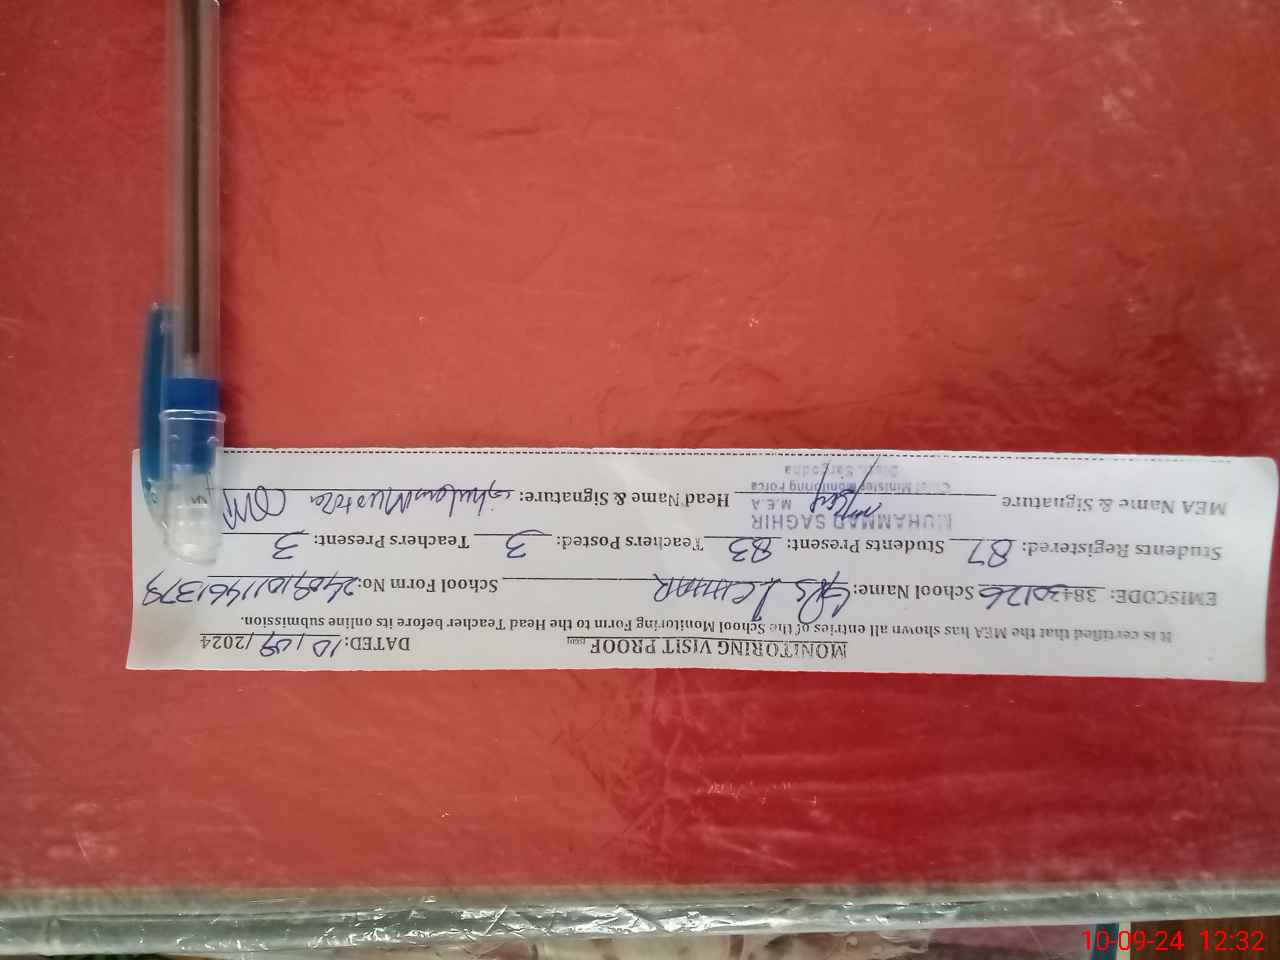 MONITORING VISIT PROOF DATED: 10/09/2024
It is certified that the MEA has shown all entries of the School Monitoring Form to the Head Teacher before its online submission.
EMISCODE: 38430126 School Name: GPS 1 CHHAR School Form No: 2409101461379
Students Registered: 87 Students Present: 83 Teachers Posted: 3 Teachers Present: 3
MEA Name & Signature Head Name & Signature: Ghulam Murtaza
MUHAMMAD SAGHIR
M.E.A
Chief Minister Monitoring Force
Distt. Sargodha
10-09-24 12:32